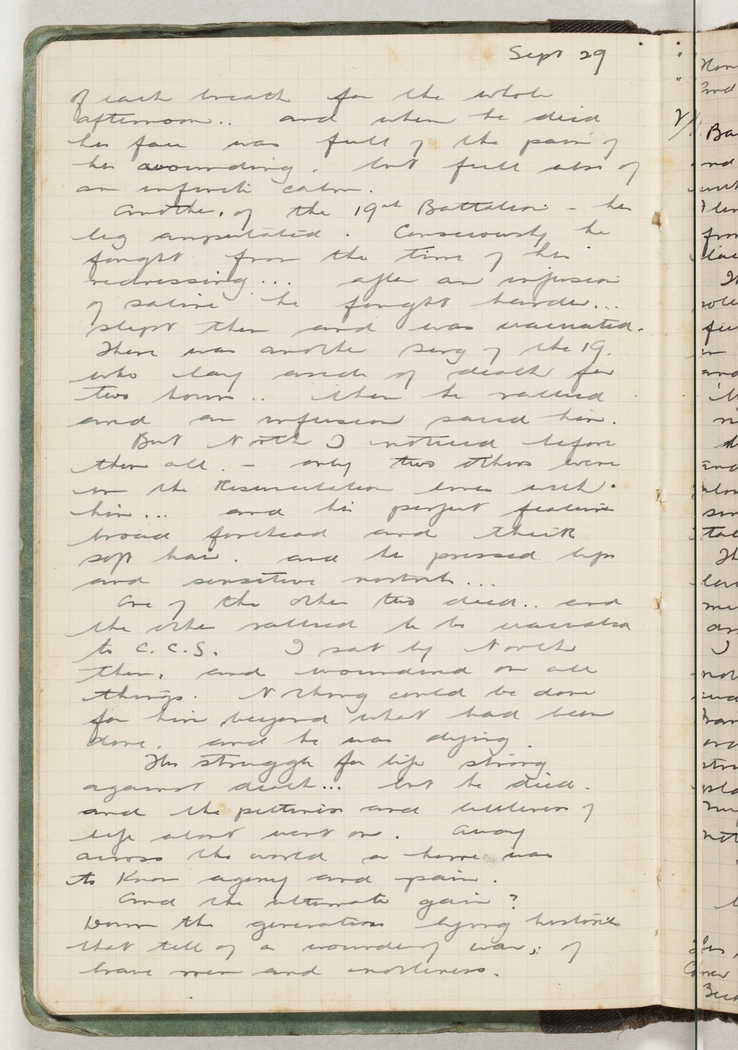 Sept 29
of each breath for the whole
afternoon.. and when he died
his face was full of the pain of
his wounding, but full also of
an infinite calm.
Another, of the 19th Battalion - his
leg amputated. Consciously he
fought from the time of his
redressing... after an infusion
of saline he fought harder...
slept then and was evacuated.
There was another Serg of the 19.
who lay inside of death for
two hours.. then he rallied
and an infusion saved him.
But North I noticed before
them all. - only two others were
in the Resuscitation lines with
him... and his perfect features
broad forehead and thick
soft hair. and the pressed lips
and sensitive nostrils...
One of the other two died.. and
the other rallied to be evacuated
to C.C.S. I sat by North
then, and wondered on all
things. Nothing could be done
for him beyond what had been
done, and he was dying.
His struggle for life strong
against death... but he died.
and the pettiness and littleness of
life about went on. Away
across the world a home was
to know agony and pain.
And the ultimate gain?
Down the generations lying histories
that tell of a wonderful war, of
brave men and nobleness.